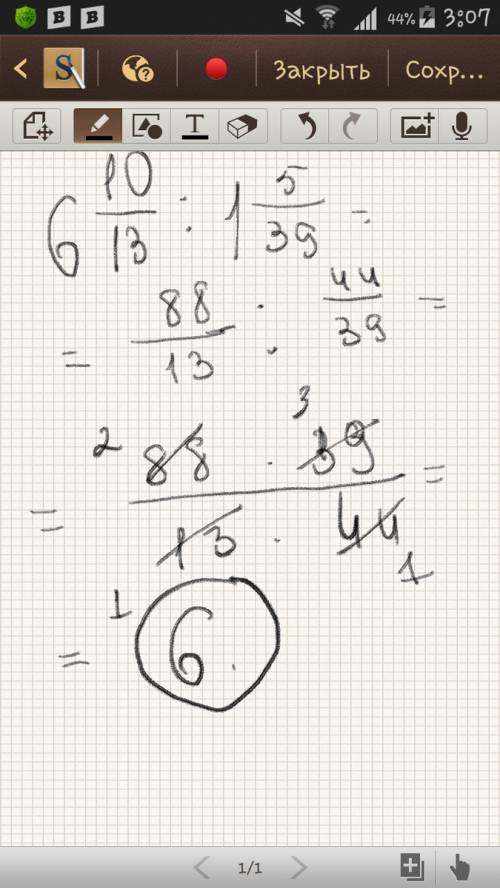 44% 3:07
S Закрыть Сохр...
T
6 10/13 : 1 5/39 =
= 88/13 : 44/39 =
2 3
= 88 · 39 / 13 · 44 =
1 1
= 6.
1/1